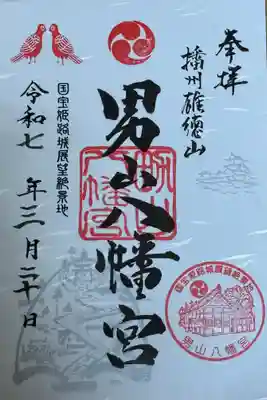 奉拝
播州雄徳山
男山八幡宮
国宝姫路城展望絶景地
令和七年三月二十日
国宝姫路城展望絶景地
男山八幡宮